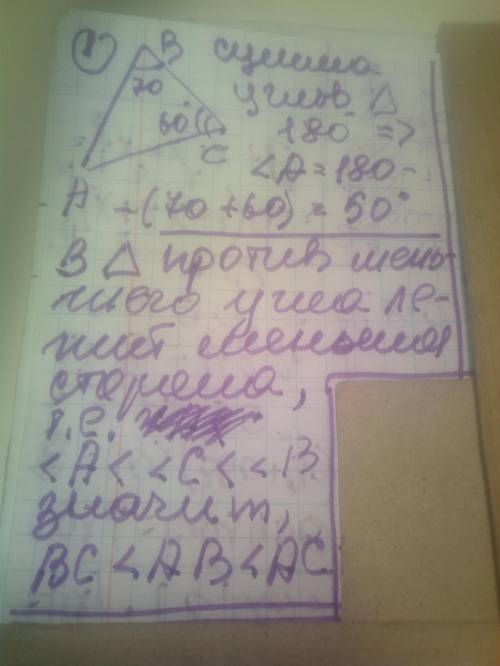 ① B сумма
70 углов △
60° 180° =>
C <A = 180-
A -(70+60) = 50°
В △ против мень-
шего угла ле-
жит меньшая
сторона,
т.е.
<A < <C < <B
значит,
BC < AB < AC